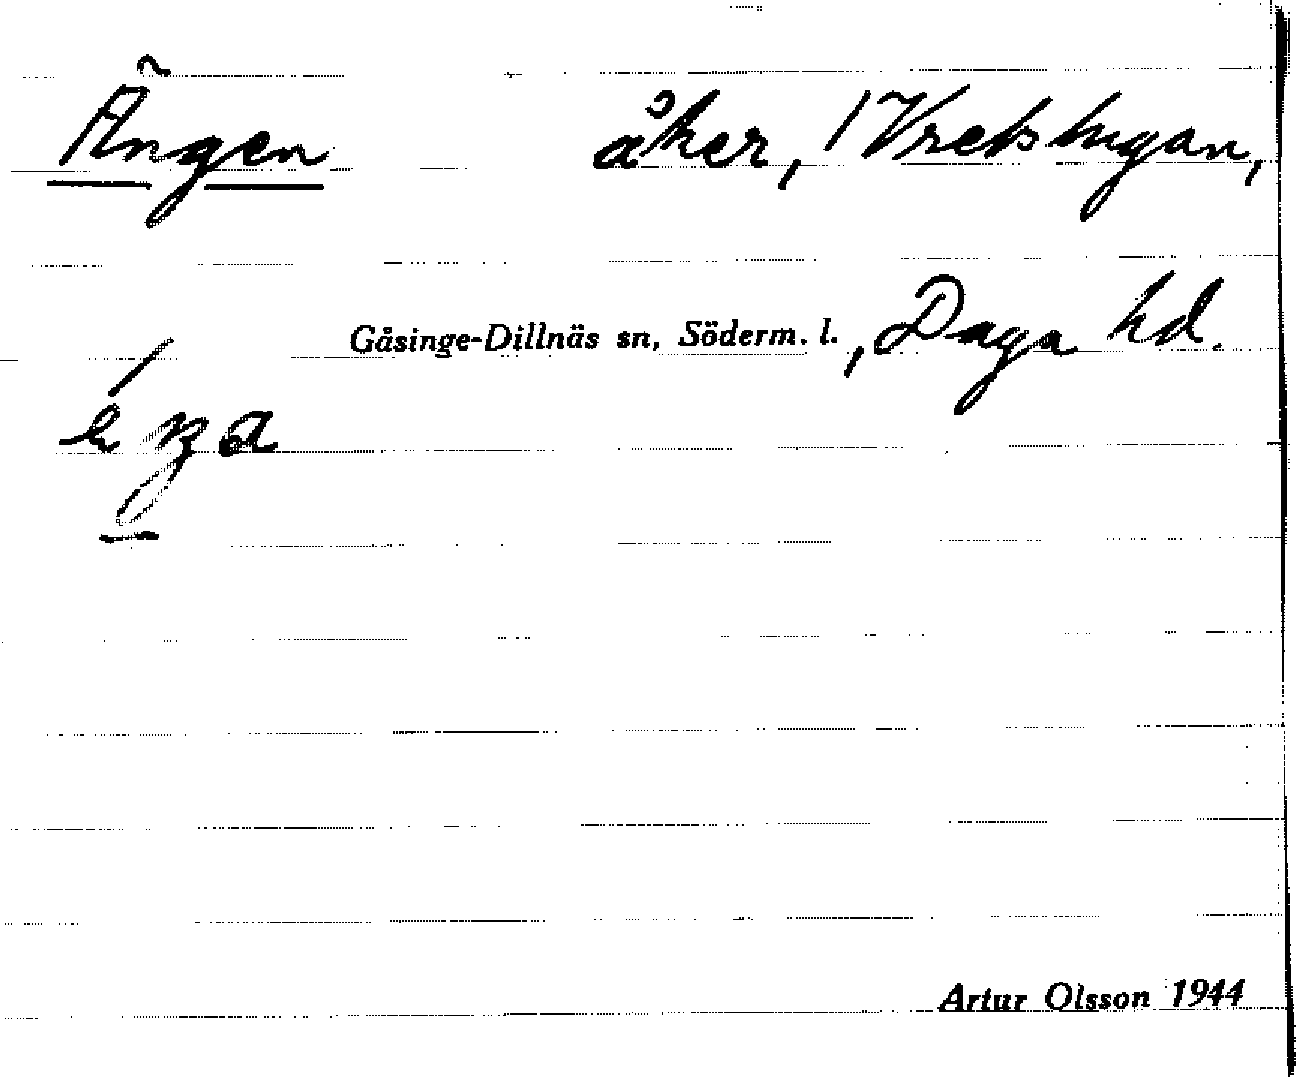 Ängen åker, / Vretstugan,
Gåsinge-Dillnäs sn, Söderm. l., Daga hd.
Artur Olsson 1944